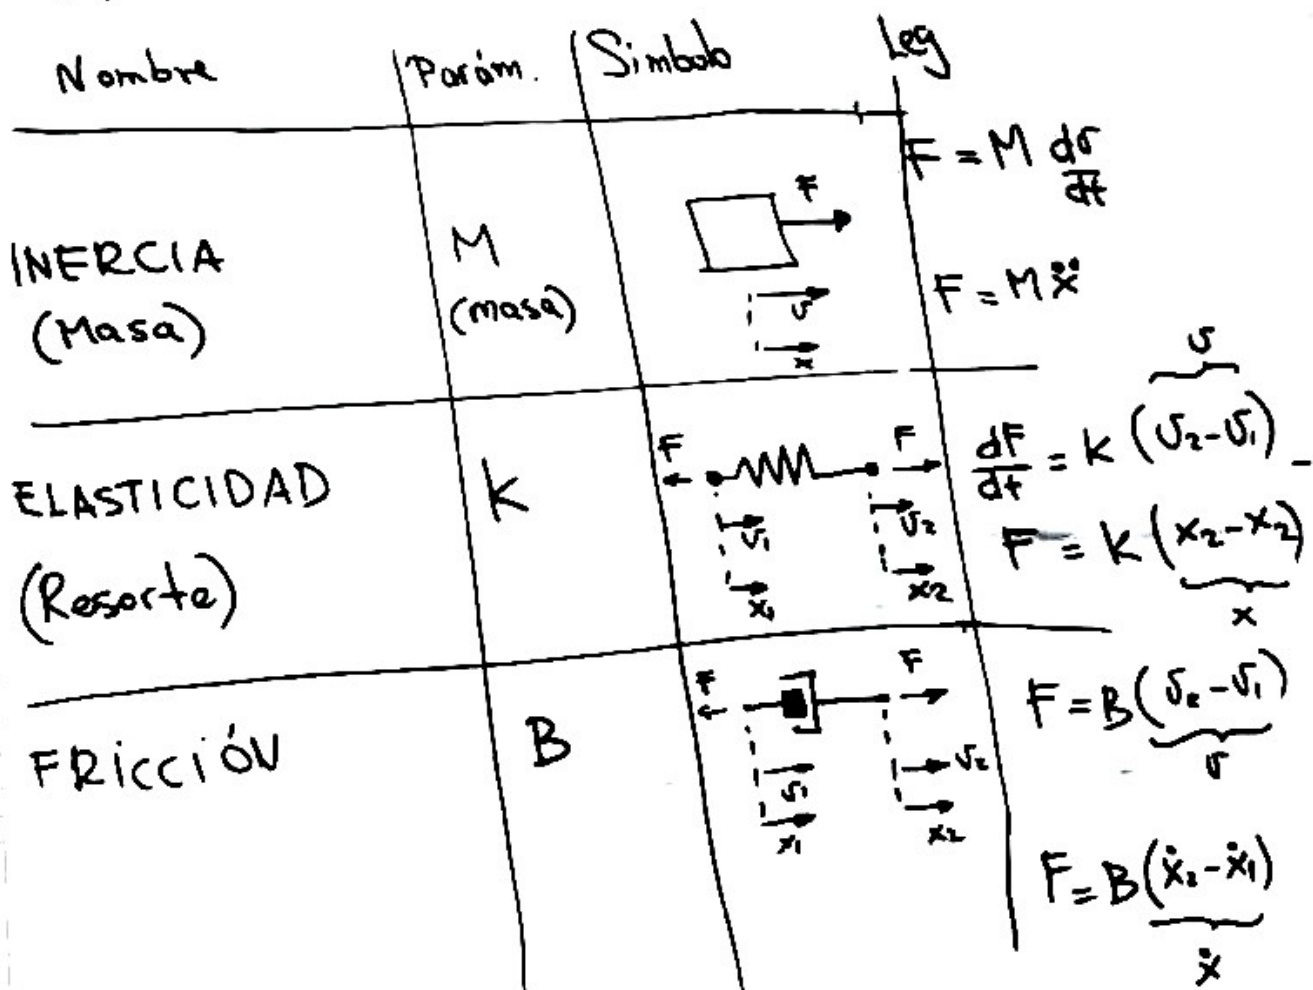 Nombre Parám. Simbolo Ley
INERCIA
(Masa)
M
(masa)
F
v
x
F = M dv/dt
F = Mẍ
ELASTICIDAD
(Resorte)
K
F F
v₁ v₂
x₁ x₂
dF/dt = K (v₂-v₁)
v
F = K (x₂-x₂)
x
FRICCIÓN
B
F F
v₁ v₂
x₁ x₂
F = B(v₂-v₁)
v
F = B(ẋ₂-ẋ₁)
ẋ